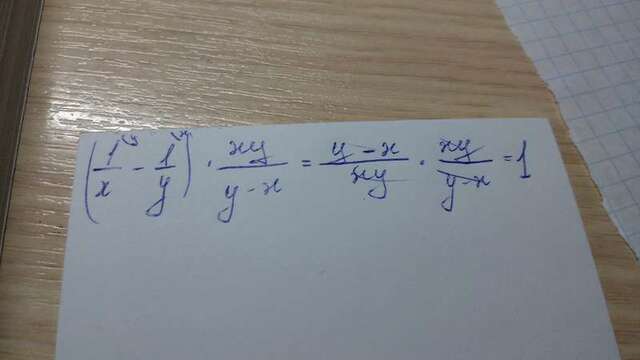 (1/x - 1/y) · xy/(y-x) = (y-x)/xy · xy/(y-x) = 1